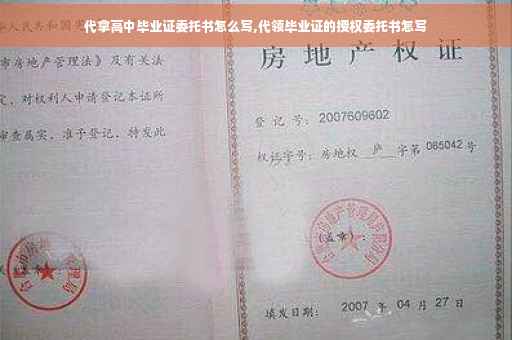 代拿高中毕业证委托书怎么写,代领毕业证的授权委托书怎写
人民共和国宪
市房地产管理法》及有关法
定，对权利人申请登记本证所
审查属实，准予登记，特发此
房地产权证
登记号：2007609602
权证字号：房地权 庐 字第 065042 号
(盖章)：
房地产管理局
填发日期：2007 年 04 月 27 日